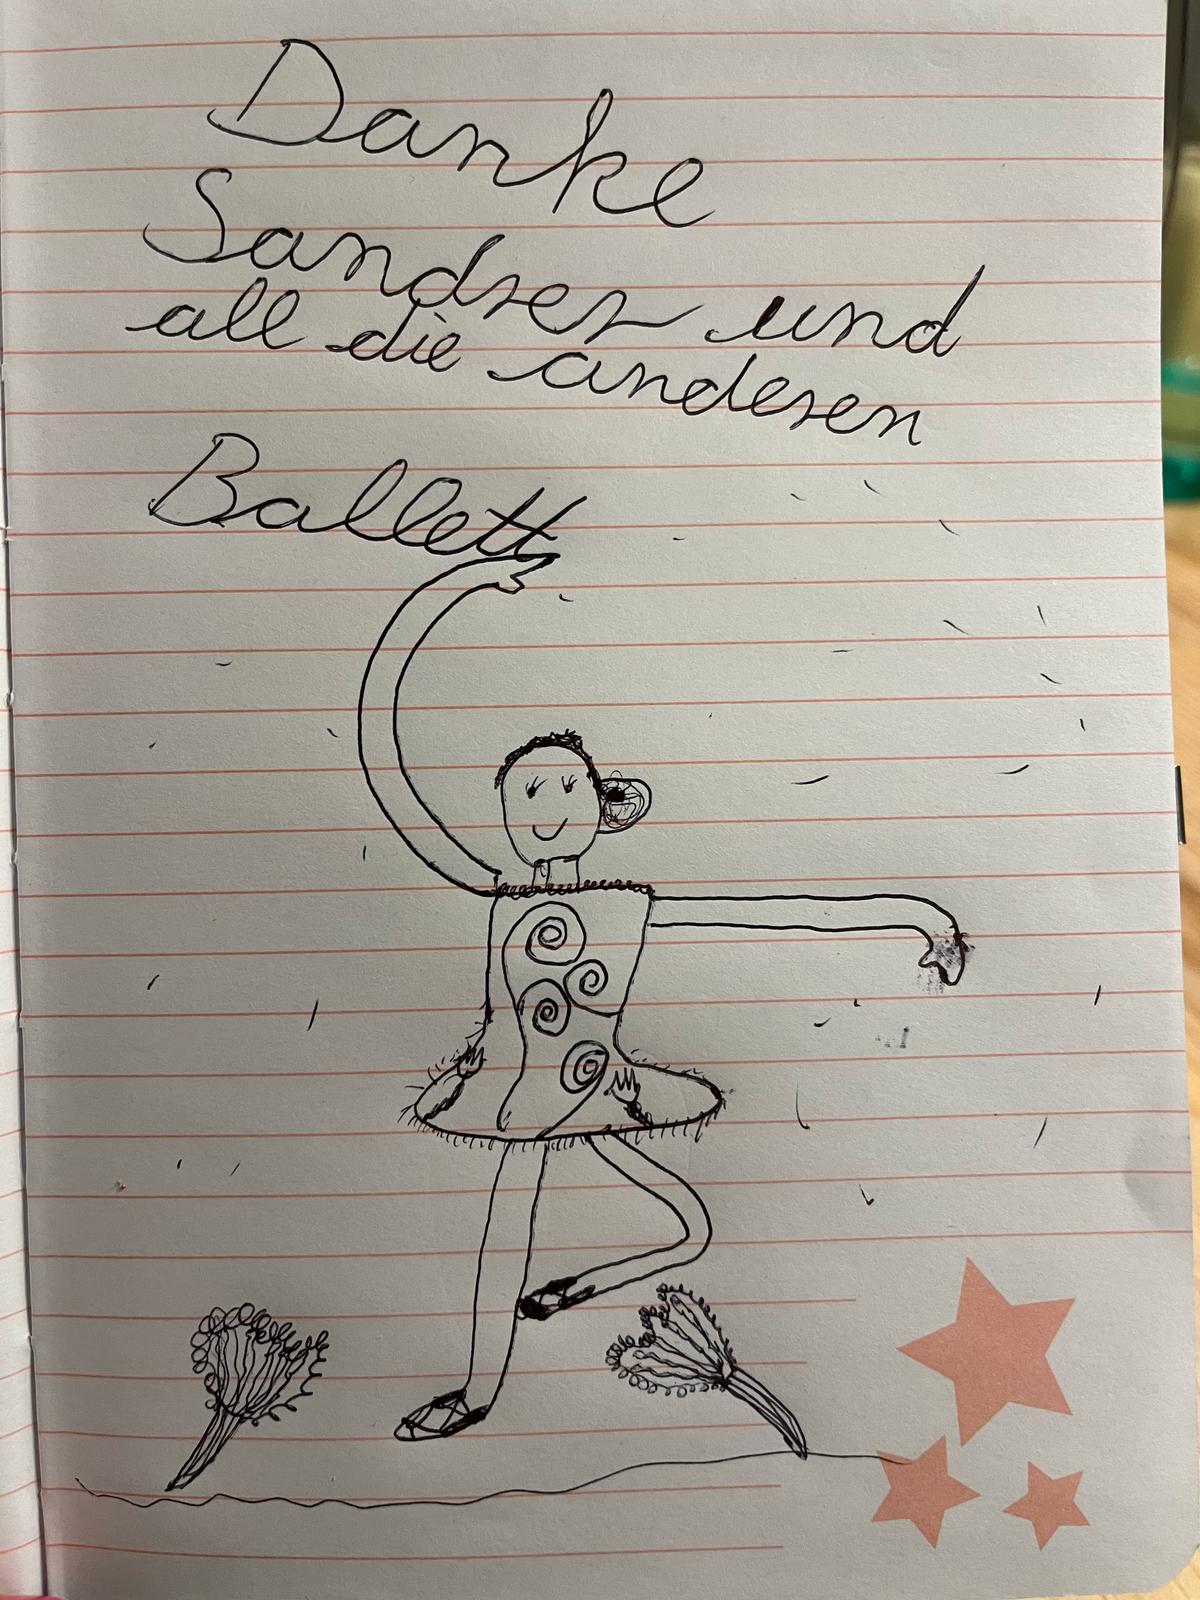 Danke
Sandrer und
all die anderen
Ballett